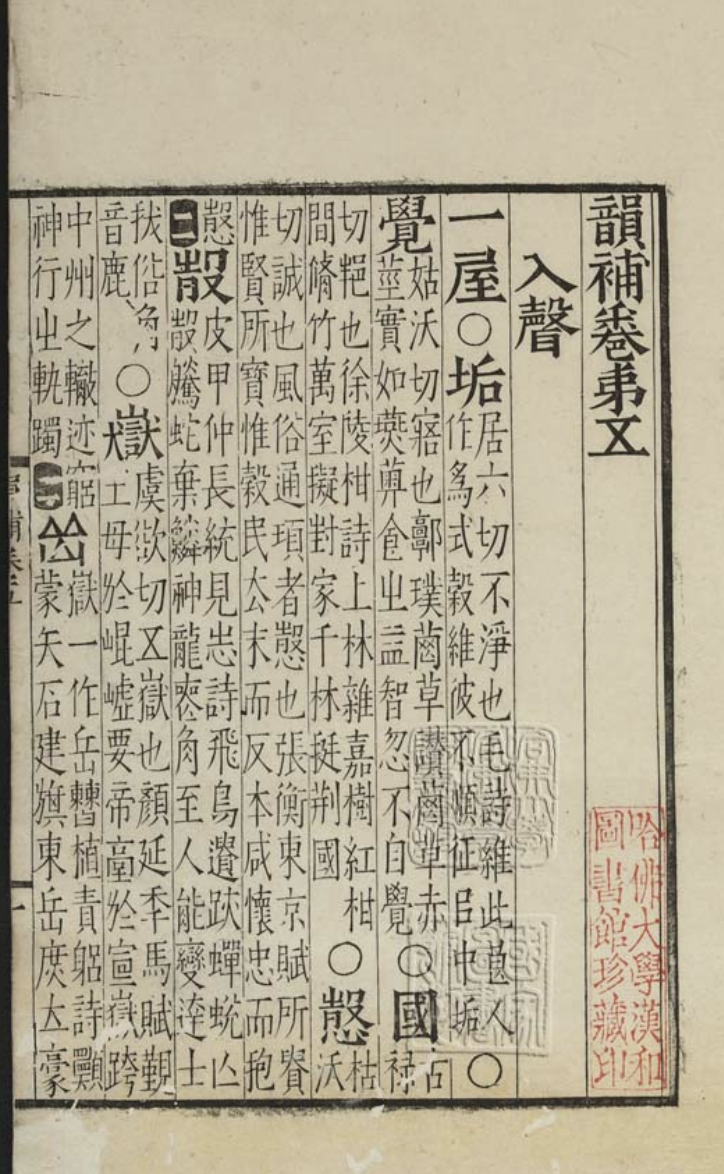 韻補卷弟五
入聲
一屋○垢居六切不淨也毛詩維此良人
作爲式穀維彼不順征㠯中垢○
覺姑沃切寤也郭璞草讚草赤
莖實如食㞢益智忽不自覺○國古
祿
切也徐陵柑詩上林雜嘉樹紅柑
間脩竹萬室擬對家千林挺荆國○愨枯
沃
切誠也風俗通項者愨也張衡東京賦所貴
惟賢所寶惟穀民去末而反本咸懷忠而抱
愨
殻皮甲仲長統見志詩飛鳥遺跡蟬蛻亾
殻騰蛇棄鱗神龍喪角至人能變達士
拔俗角
音鹿○嶽虞欲切五嶽也顏延年馬賦覲
王母於崐墟要帝臺於宣嶽跨
中州之轍迹窮
神行㞢軌躅
岳嶽一作岳曹植責躬詩願
蒙矢石建旗東岳庶立豪
哈佛大學漢和
圖書館珍藏印